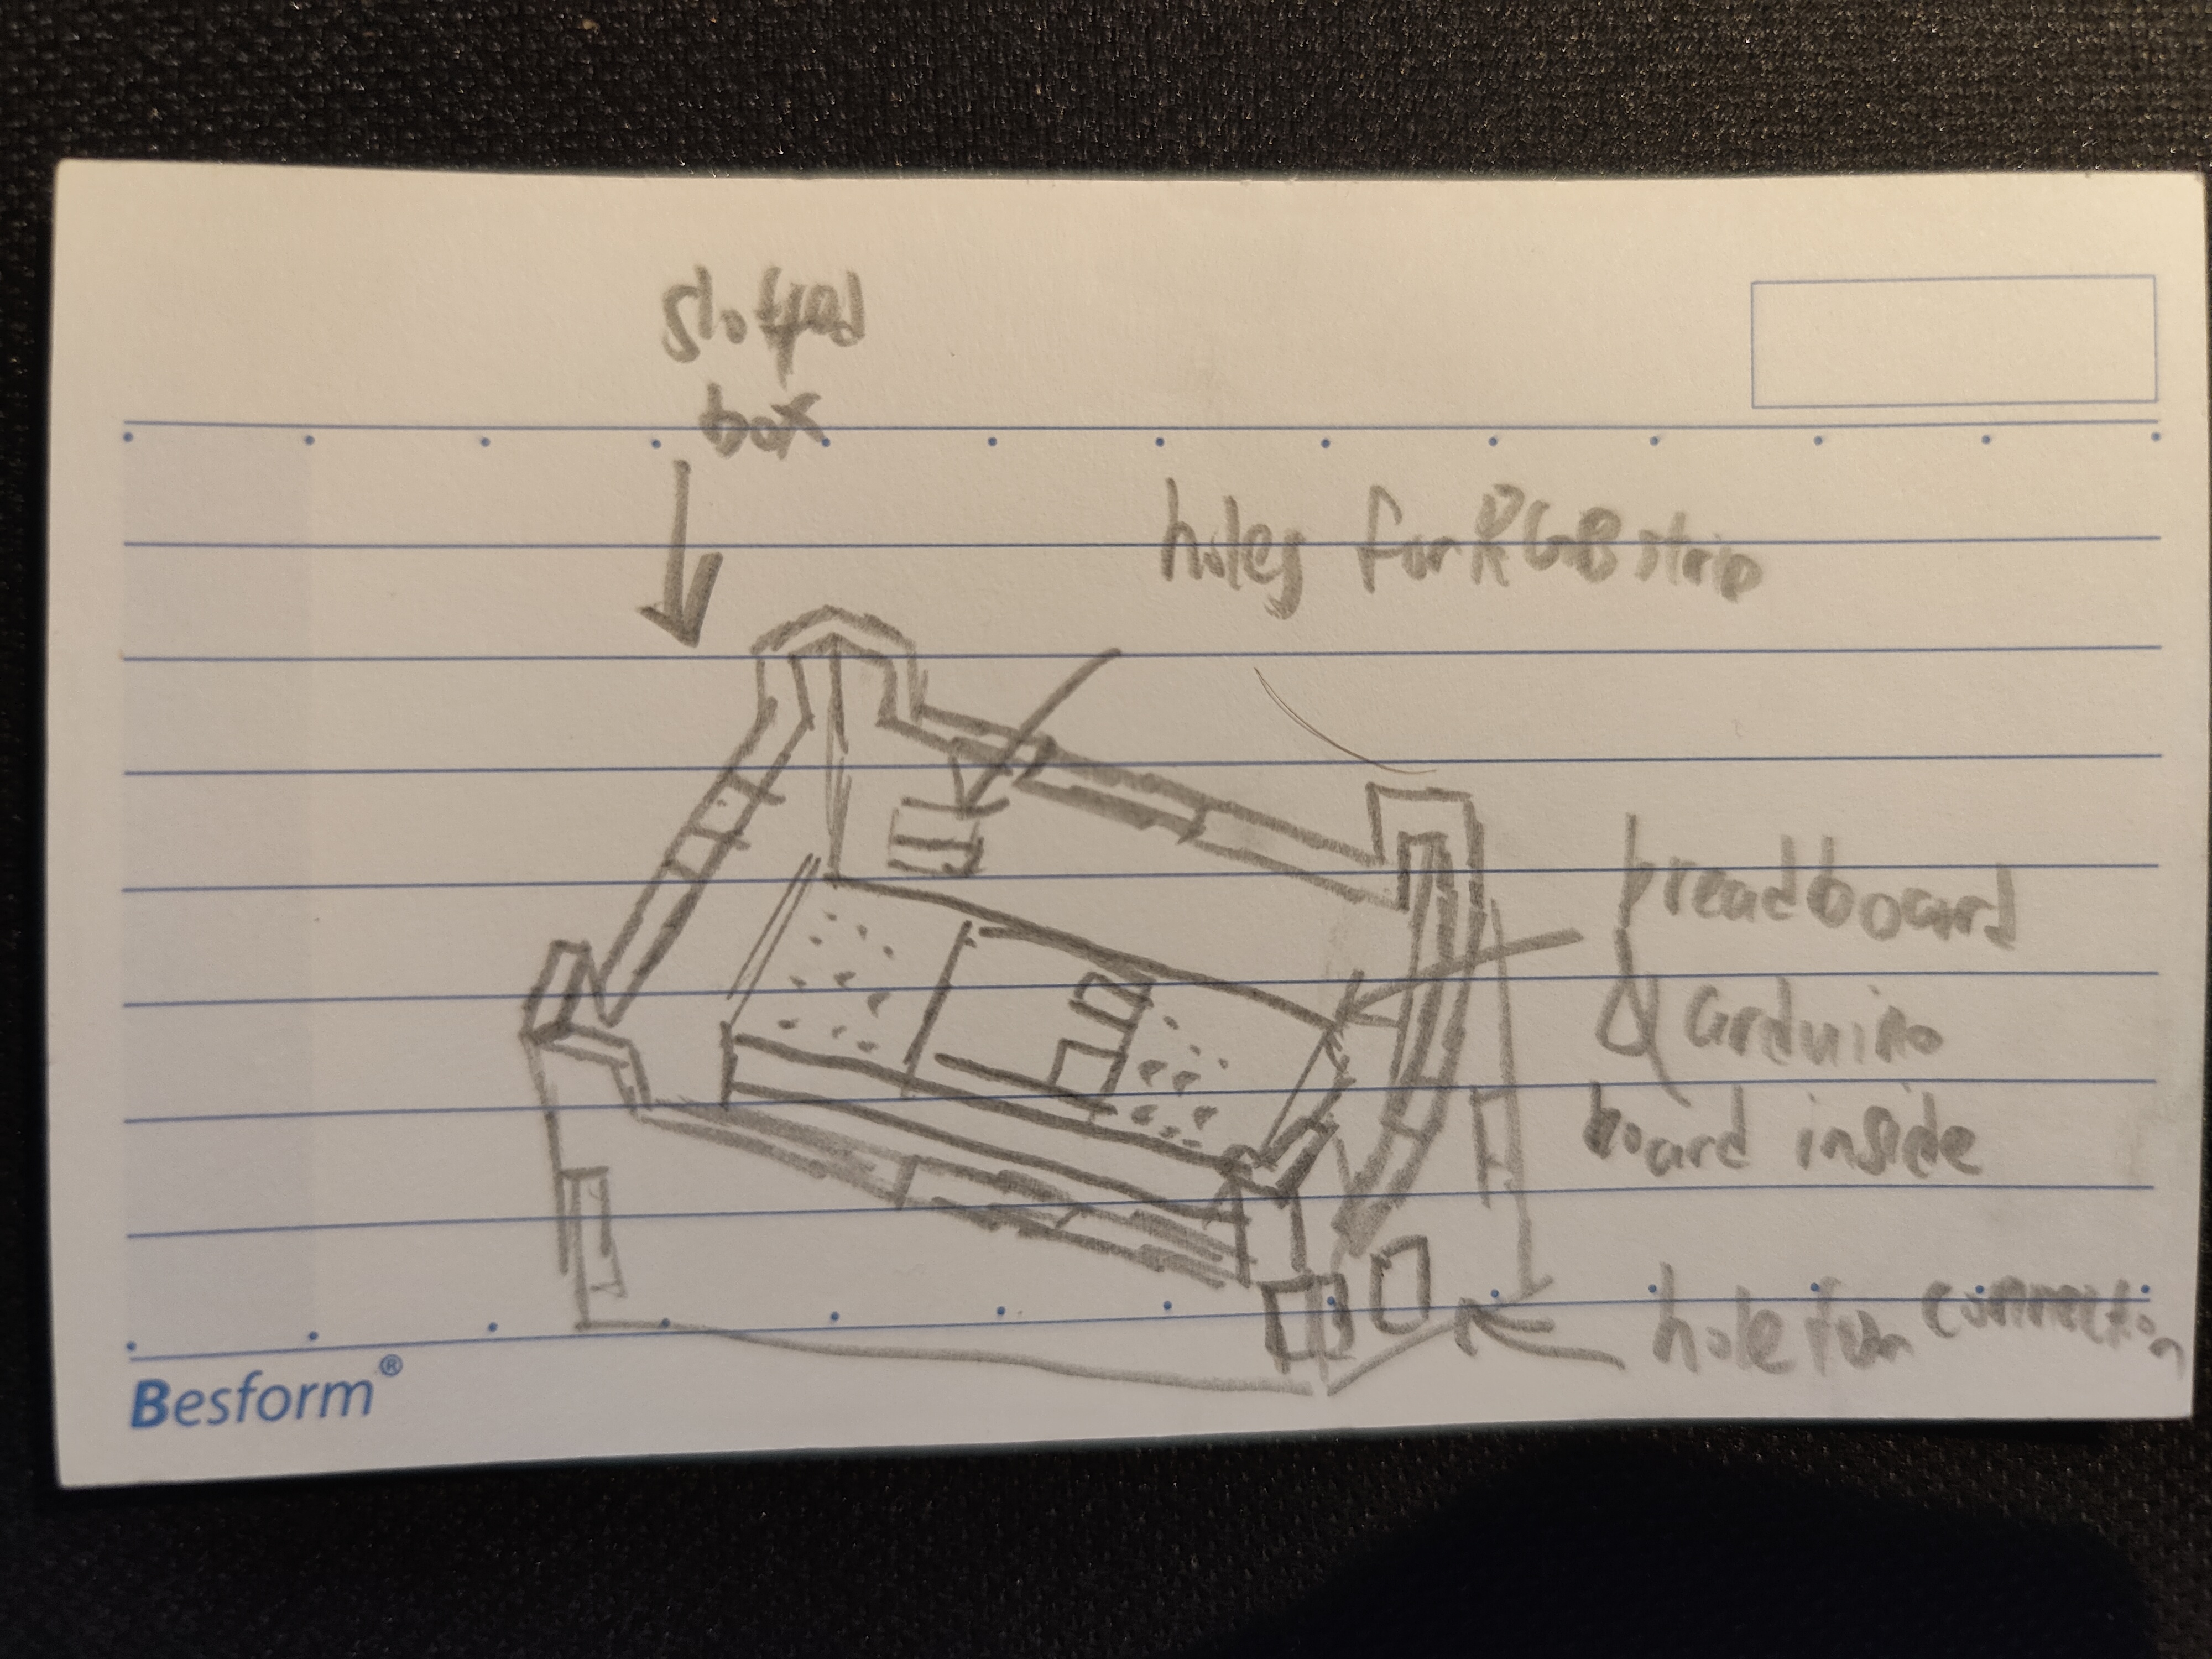 slotted
box
holes for RGB strip
breadboard
& arduino
board inside
hole for connection
Besform®